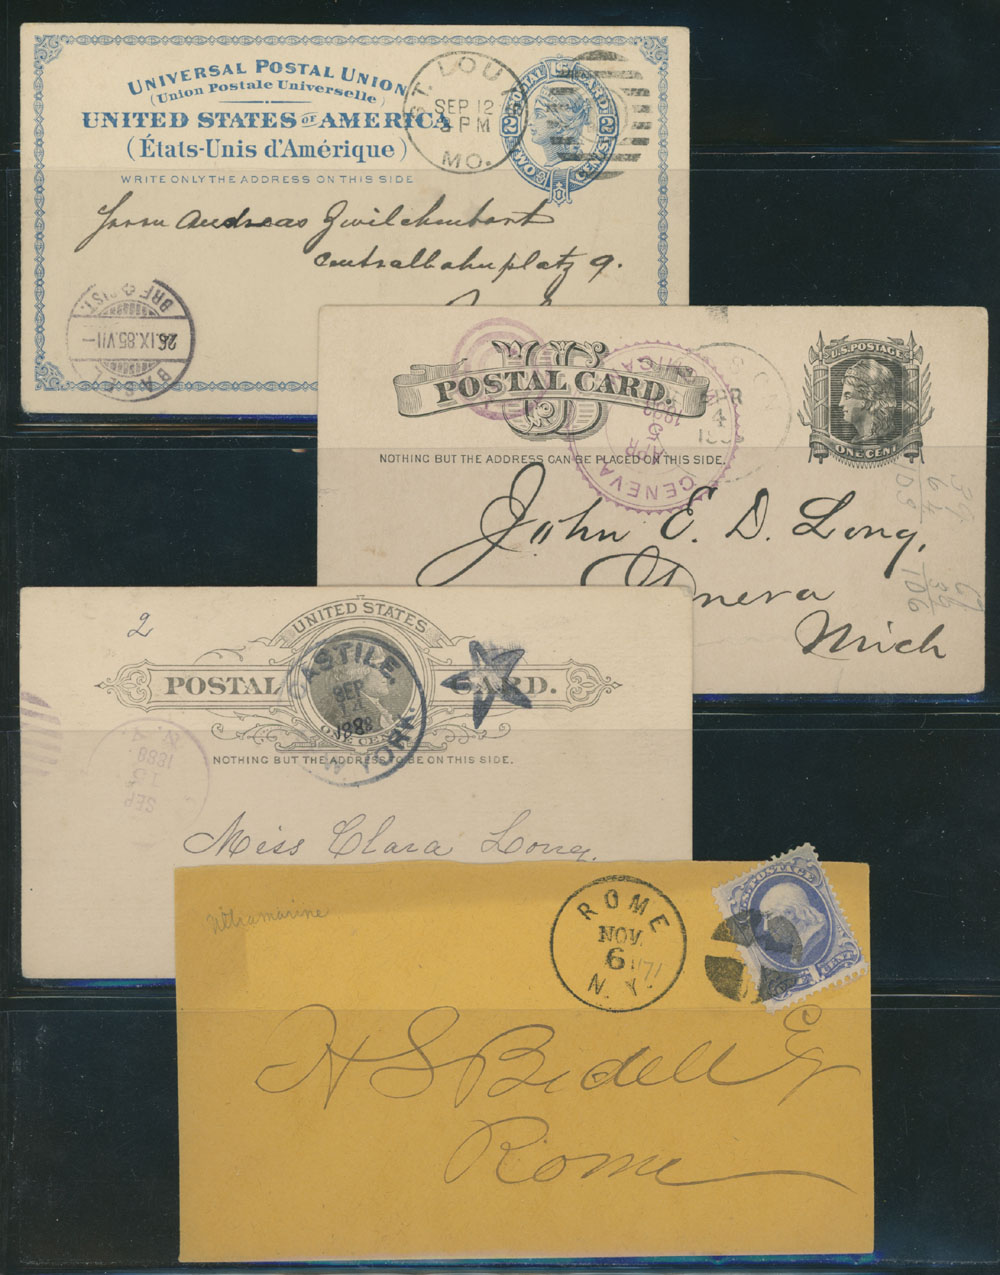 UNIVERSAL POSTAL UNION
(Union Postale Universelle)
UNITED STATES OF AMERICA
(États-Unis d'Amérique)
WRITE ONLY THE ADDRESS ON THIS SIDE
ST. LOU
SEP 12
PM
MO.
POSTAL CARD
2 2
TWO CENTS
Herrn Andreas Zwilchenbart
Centralbahnplatz 9.
BRF DIST.
26.IX.85.VII-
BASEL
POSTAL CARD.
NOTHING BUT THE ADDRESS CAN BE PLACED ON THIS SIDE.
GENEVA
APR
4
U.S. POSTAGE
ONE CENT
John E. D. Long,
Geneva
Mich
39
64
109
67
39
106
2
UNITED STATES
POSTAL CARD.
ONE CENT
CASTILE,
SEP
14
1888
N. YORK.
NOTHING BUT THE ADDRESS TO BE ON THIS SIDE.
SEP
15
1888
N.Y.
Miss Clara Long.
Ultramarine
ROME
NOV.
6
N.Y.
POSTAGE
CENT
H S Bedell Esq
Rome